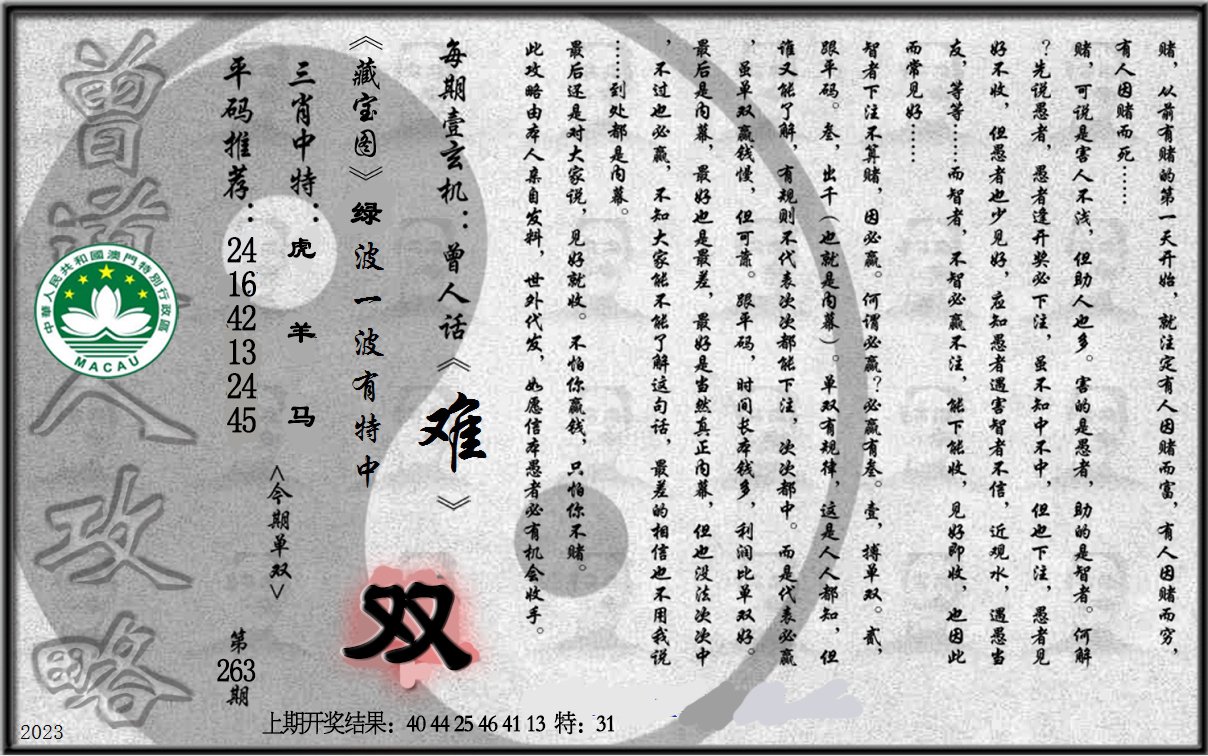 赌，从前有赌的第一天开始，就注定有人因赌而富，有人因赌而穷，
有人因赌而死……
赌，可说是害人不浅，但助人也多。害的是愚者，助的是智者。何解
？先说愚者，愚者逢开奖必下注，虽不知中不中，但也下注，愚者见
好不收，但愚者也少见好，应知愚者遇害智者不信，近观水，遇愚当
友，等等……而智者，不智必赢不注，能下能收，见好即收，也因此
而常见好……
智者下注不算赌，因必赢。何谓必赢？必赢有叁。壹，搏单双。贰，
跟平码。叁，出千（也就是内幕）。单双有规律，这是人人都知，但
谁又能了解，有规则不代表次次都能下注，次次都中。而是代表必赢
，虽单双赢钱慢，但可靠。跟平码，时间长本钱多，利润比单双好。
最后是内幕，最好也是最差，最好是当然真正内幕，但也没法次次中
，不过也必赢，不知大家能不能了解这句话，最差的相信也不用我说
……到处都是内幕。
最后还是对大家说，见好就收。不怕你赢钱，只怕你不赌。
此攻略由本人亲自发料，世外代发，如愿信本愚者必有机会收手。
每期壹玄机：曾人话《难》
《藏宝图》绿波一波有特中
三肖中特：虎 羊 马
平码推荐：24 16 42 13 24 45
<今期单双>
双
第263期
上期开奖结果：40 44 25 46 41 13 特：31
曾道人攻略
中華人民共和國澳門特別行政區
MACAU
2023